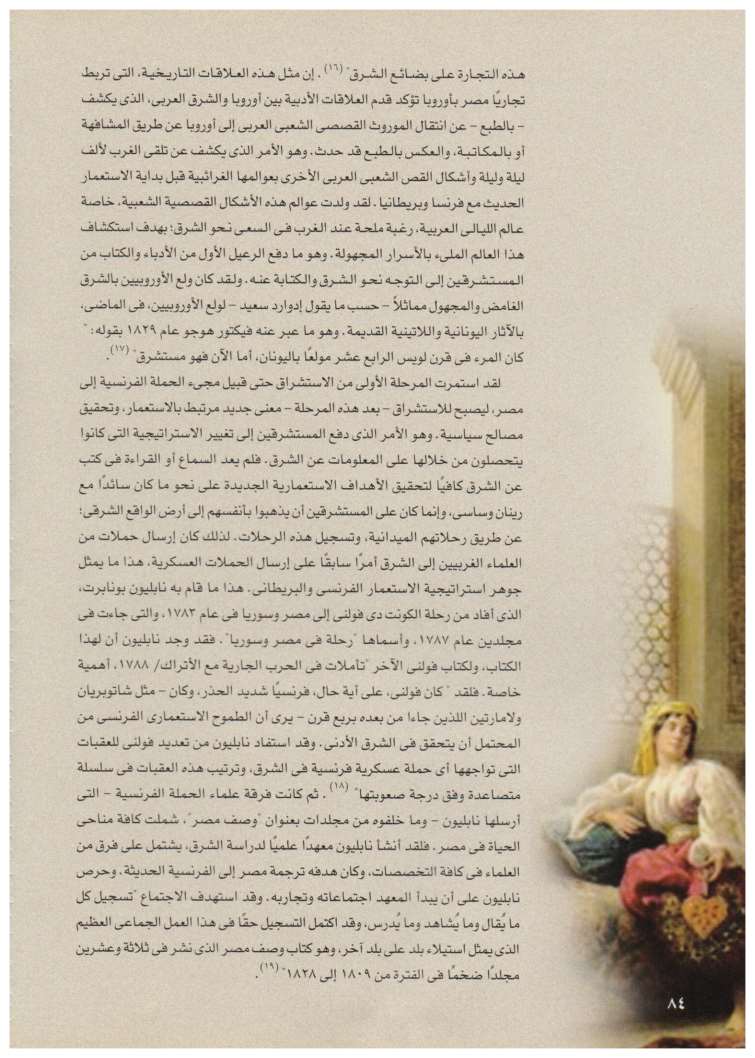 هذه التجارة على بضائع الشرق" (١٦) . إن مثل هذه العلاقات التاريخية، التى تربط
تجاريًا مصر بأوروبا تؤكد قدم العلاقات الأدبية بين أوروبا والشرق العربى، الذى يكشف
– بالطبع – عن انتقال الموروث القصصى الشعبى العربى إلى أوروبا عن طريق المشافهة
أو بالمكاتبة، والعكس بالطبع قد حدث. وهو الأمر الذى يكشف عن تلقى الغرب لألف
ليلة وليلة وأشكال القص الشعبى العربى الأخرى بعوالمها الغرائبية قبل بداية الاستعمار
الحديث مع فرنسا وبريطانيا. لقد ولدت عوالم هذه الأشكال القصصية الشعبية، خاصة
عالم الليالى العربية، رغبة ملحة عند الغرب فى السعى نحو الشرق؛ بهدف استكشاف
هذا العالم الملىء بالأسرار المجهولة. وهو ما دفع الرعيل الأول من الأدباء والكتاب من
المستشرقين إلى التوجه نحو الشرق والكتابة عنه. ولقد كان ولع الأوروبيين بالشرق
الغامض والمجهول مماثلاً – حسب ما يقول إدوارد سعيد – لولع الأوروبيين، فى الماضى،
بالآثار اليونانية واللاتينية القديمة. وهو ما عبر عنه فيكتور هوجو عام ١٨٢٩ بقوله: "
كان المرء فى قرن لويس الرابع عشر مولعًا باليونان، أما الآن فهو مستشرق" (١٧).
لقد استمرت المرحلة الأولى من الاستشراق حتى قبيل مجىء الحملة الفرنسية إلى
مصر، ليصبح للاستشراق – بعد هذه المرحلة – معنى جديد مرتبط بالاستعمار، وتحقيق
مصالح سياسية. وهو الأمر الذى دفع المستشرقين إلى تغيير الاستراتيجية التى كانوا
يتحصلون من خلالها على المعلومات عن الشرق. فلم يعد السماع أو القراءة فى كتب
عن الشرق كافيًا لتحقيق الأهداف الاستعمارية الجديدة على نحو ما كان سائدًا مع
رينان وساسى، وإنما كان على المستشرقين أن يذهبوا بأنفسهم إلى أرض الواقع الشرقى؛
عن طريق رحلاتهم الميدانية، وتسجيل هذه الرحلات. لذلك كان إرسال حملات من
العلماء الغربيين إلى الشرق أمرًا سابقًا على إرسال الحملات العسكرية، هذا ما يمثل
جوهر استراتيجية الاستعمار الفرنسى والبريطانى. هذا ما قام به نابليون بونابرت،
الذى أفاد من رحلة الكونت دى فولنى إلى مصر وسوريا فى عام ١٧٨٣، والتى جاءت فى
مجلدين عام ١٧٨٧، وأسماها "رحلة فى مصر وسوريا". فقد وجد نابليون أن لهذا
الكتاب، ولكتاب فولنى الآخر "تأملات فى الحرب الجارية مع الأتراك/ ١٧٨٨، أهمية
خاصة. فلقد " كان فولنى، على أية حال، فرنسيًا شديد الحذر، وكان – مثل شاتوبريان
ولامارتين اللذين جاءا من بعده بربع قرن – يرى أن الطموح الاستعمارى الفرنسى من
المحتمل أن يتحقق فى الشرق الأدنى. وقد استفاد نابليون من تعديد فولنى للعقبات
التى تواجهها أى حملة عسكرية فرنسية فى الشرق، وترتيب هذه العقبات فى سلسلة
متصاعدة وفق درجة صعوبتها" (١٨) . ثم كانت فرقة علماء الحملة الفرنسية – التى
أرسلها نابليون – وما خلفوه من مجلدات بعنوان "وصف مصر"، شملت كافة مناحى
الحياة فى مصر. فلقد أنشأ نابليون معهدًا علميًا لدراسة الشرق، يشتمل على فرق من
العلماء فى كافة التخصصات، وكان هدفه ترجمة مصر إلى الفرنسية الحديثة. وحرص
نابليون على أن يبدأ المعهد اجتماعاته وتجاربه. وقد استهدف الاجتماع "تسجيل كل
ما يُقال وما يُشاهد وما يُدرس، وقد اكتمل التسجيل حقًا فى هذا العمل الجماعى العظيم
الذى يمثل استيلاء بلد على بلد آخر، وهو كتاب وصف مصر الذى نشر فى ثلاثة وعشرين
مجلدًا ضخمًا فى الفترة من ١٨٠٩ إلى ١٨٢٨" (١٩).
٨٤